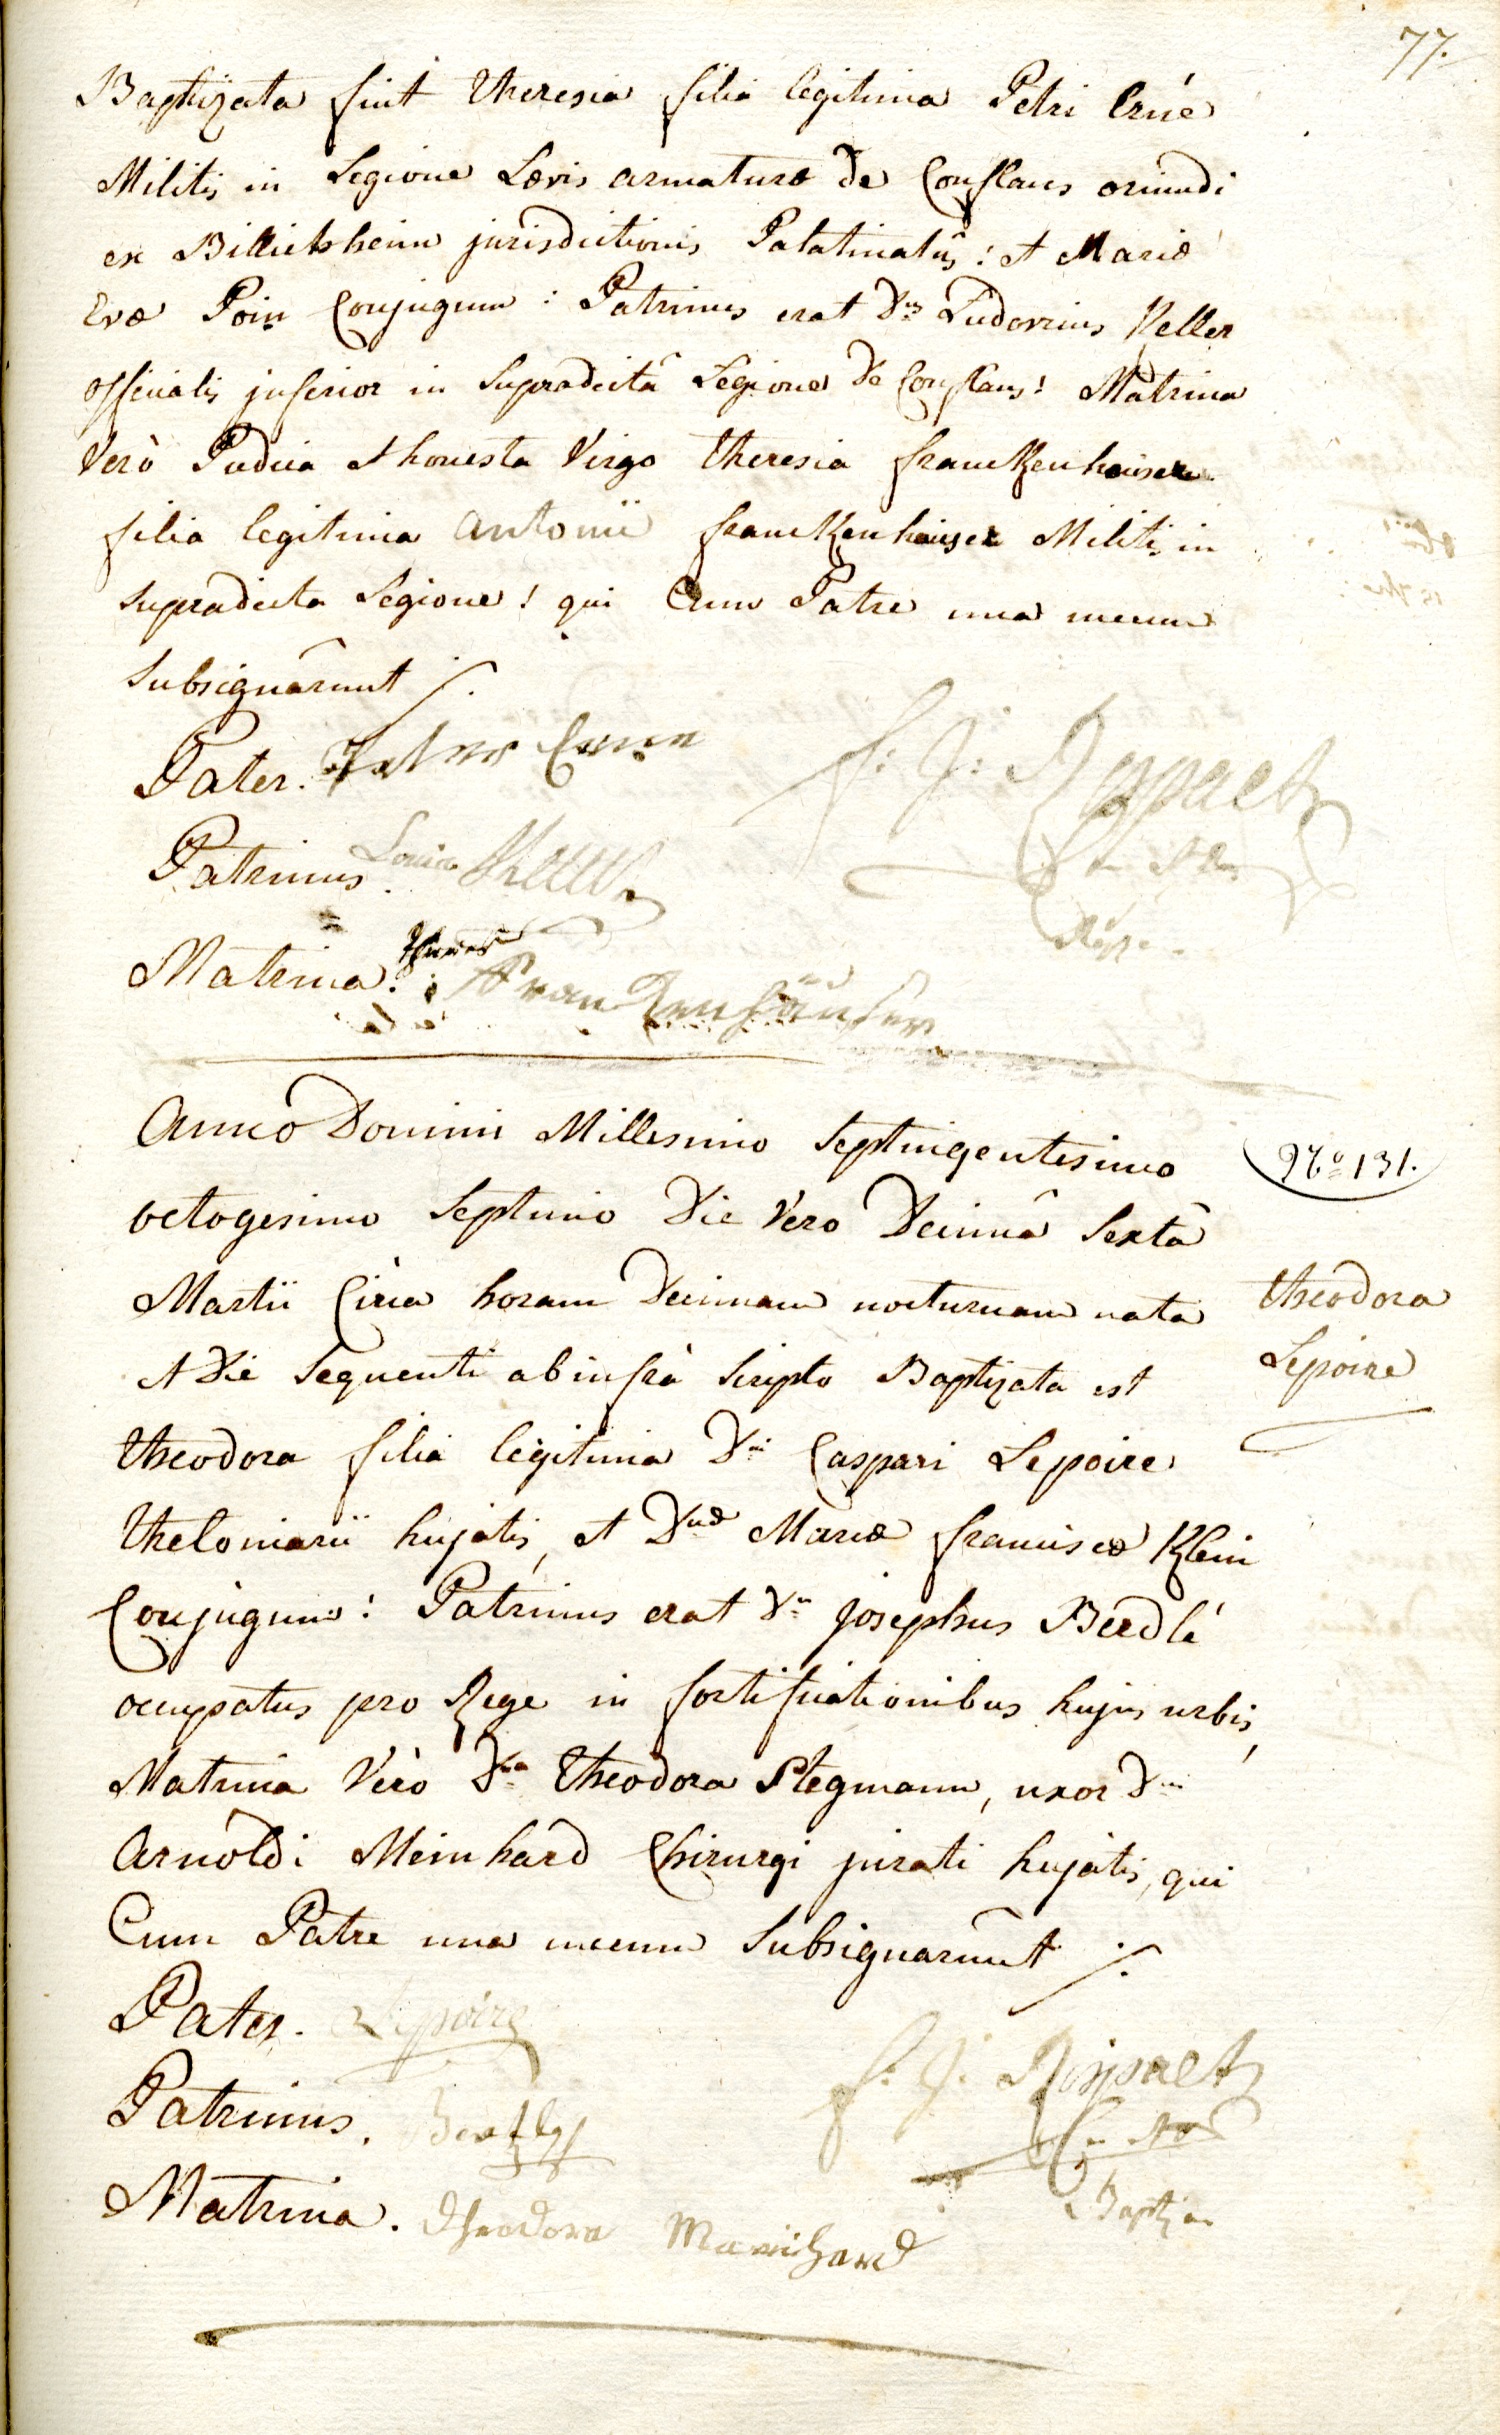 77.
Baptizata fuit Theresia filia legitima Petri Erné
Militis in Legione Lævis armaturæ de Conflans oriundi
ex Billicksheim jurisdictionis Palatinatûs: et Mariæ
Evæ Poin Conjugum: Patrinus erat Dnus Ludovicus Keller
officialis inferior in supradictâ Legione de Conflans: Matrina
Verò Pudica et honesta Virgo Theresia franckenhauser
filia legitima Antonii franckenhauser Militis in
supradicta Legione: qui Cum Patre una mecum
Subsignârunt ./.
Pater. Peter Erne
Patrinus. Louis Keller
Matrina. Theres Franckenhäuser
f: J: Ruppaelt
Anno Domini Millesimo Septingentesimo
octogesimo Septimo Die Vero Decimâ Sextâ
Martii Circa horam Decimam nocturnam nata
et Die Sequenti ab infrà Scripto Baptizata est
Theodora filia legitima Dni Caspari Lepoire
Theloniarii hujatis, et Dnæ Mariæ franciscæ Klein
Conjugum: Patrinus erat Dns Josephus Berdlé
occupatus pro Rege in fortificationibus hujus urbis,
Matrina Verò Dna Theodora Stegmann, uxor Dni
Arnoldi Meinhard Chirurgi jurati hujatis, qui
Cum Patre una mecum Subsignarunt ./.
No 131.
Theodora
Lepoire
Pater. Lepoire
Patrinus.
Matrina. Theodora Meinhard
f: J: Ruppaelt